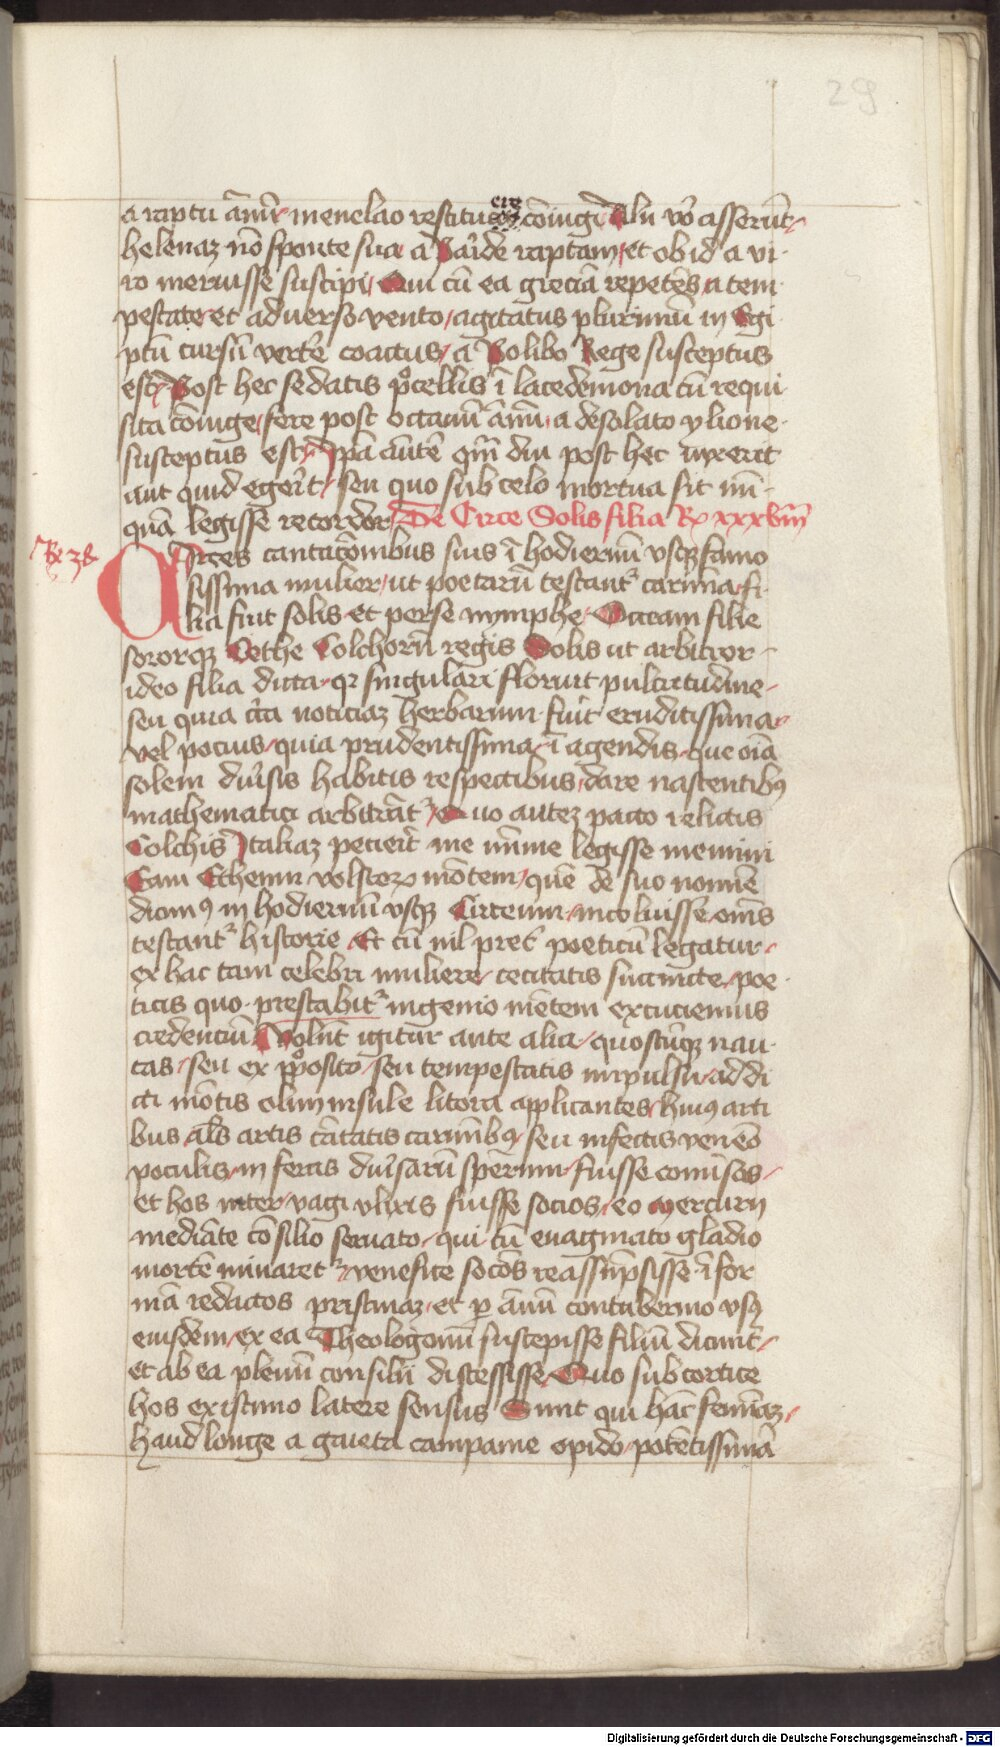 29
a raptu ānū menelao restitu cīg cōiugē Alii vō asserūt
helenaz nō sponte sua a Paride raptam et ob id a vi-
ro meruisse suscipi Qui cū ea greciā repetēs a tem-
pestate et adverso vento agitatus plurimū in Egi-
ptū cursū vertere coactus a Polibo Rege susceptus
est Post hec sedatis pͦcellis ī lacedemona cū requi
sita cōiuge fere post octauū ānū a desolato ylione
susceptus est Ipā autē qm̄ diu post hec vixerit
aut quid egerit seu quo sub celo mortua sit nū-
quā legisse recordor De Circe Solis filia Rᵃ xxxviij
Rᵃ 38
Circes cantatōnibus suis ī hodiernū vsqꝫ famo
sissima mulier ut poetarū testantᵘʳ carmīa fi-
lia fuit solis et perse nymphe Occeani filie
sororqꝫ Oethe Colchorū regis Solis ut arbitror
ideo filia dicta qꝛ singulari floruit pulcritudīne
seu quia circa noticiaz herbarum fuit eruditissima
vel pocius quia prudentissima ī agendis que oīa
solem diuersis habitis respectibus dare nascentibꝰ
mathematici arbitrātᵘʳ Quo autez pacto relictis
Colchis Italiaz petierit me mīme legisse memini
Eam Etheum volscoꝝ mōtem quē de suo nomīe
dicimꝰ in hodiernū vsqꝫ Circeum incoluisse oms
testantᵘʳ historie Et cū nil preter poeticū legatur
ex hac tam celebri muliere recitatis succincte poe-
ticis quo prestabitᵘʳ ingenio mētem excuciemus
credenciū Volūt igitur ante alia quoscūqꝫ nau-
tas seu ex ꝓposito seu tempestatis impulsu ad di
cti mōtis olim insule litora applicantes huiꝰ arti
bus als artis cātatis carmībꝰ seu infectis venēo
poculis in feras diuersarū sperum fuisse conuersos
et hos inter vagi vlixis fuisse socios eo mercurii
mediāte cōsilio seruato qui cū euaginato gladio
mortē minaretᵘʳ venefice socios reassūpsisse ī for
mā redactos pristinaz et ꝑ ānū contubernio vsꝰ
eiusdem ex ea Theologonū suscepisse filiū dicunt
et ab ea plenū consilii discessisse Quo sub cortice
hos existimo latere sensus Sunt qui hāc femīaz
haud longe a gaieta campanie opido potētissimā
Digitalisierung gefördert durch die Deutsche Forschungsgemeinschaft - DFG